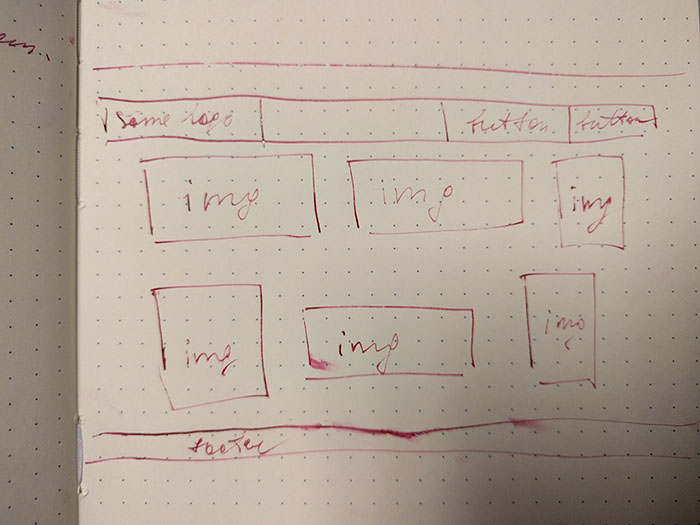 some logo button button
img img img
img img img
footer